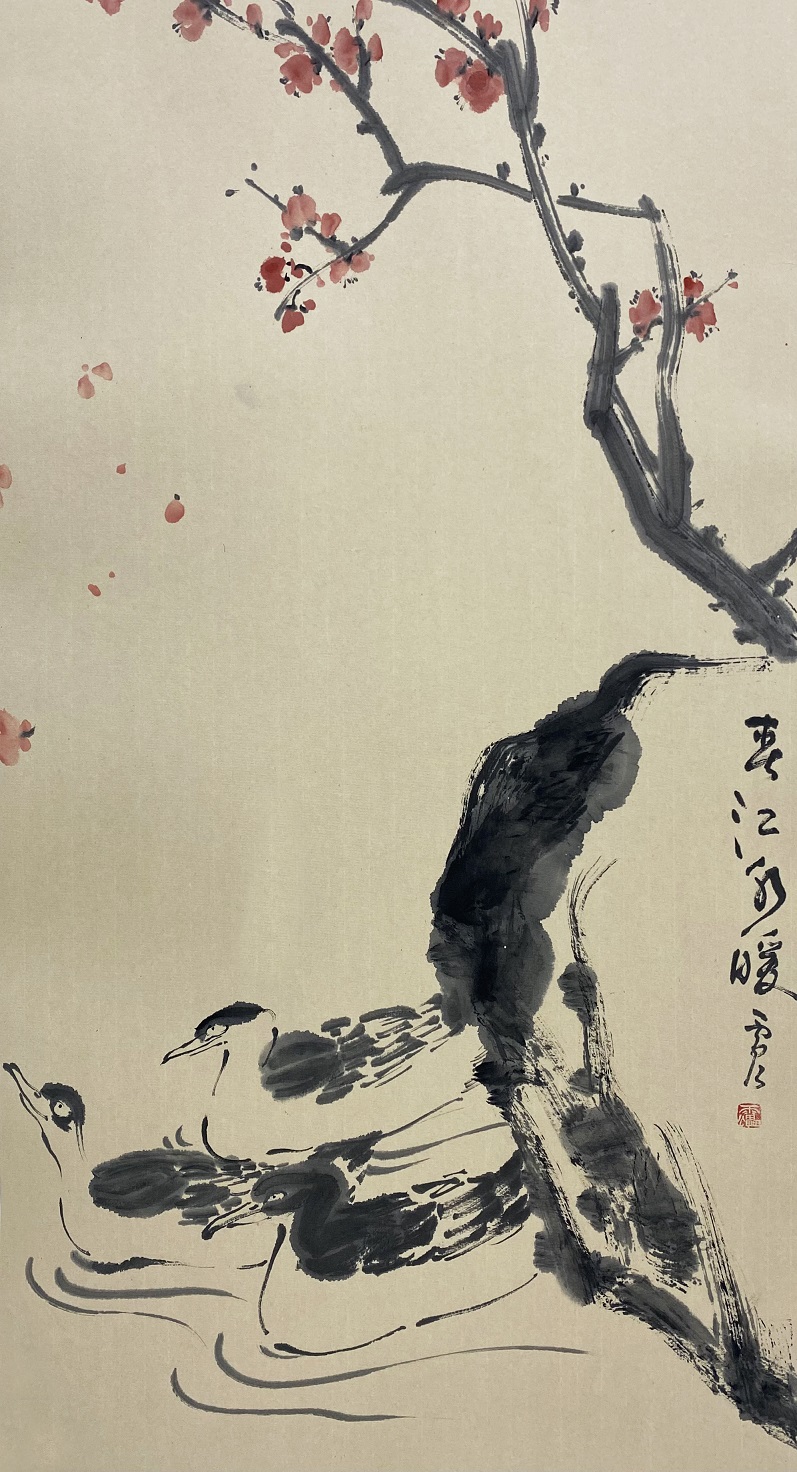 春江水暖